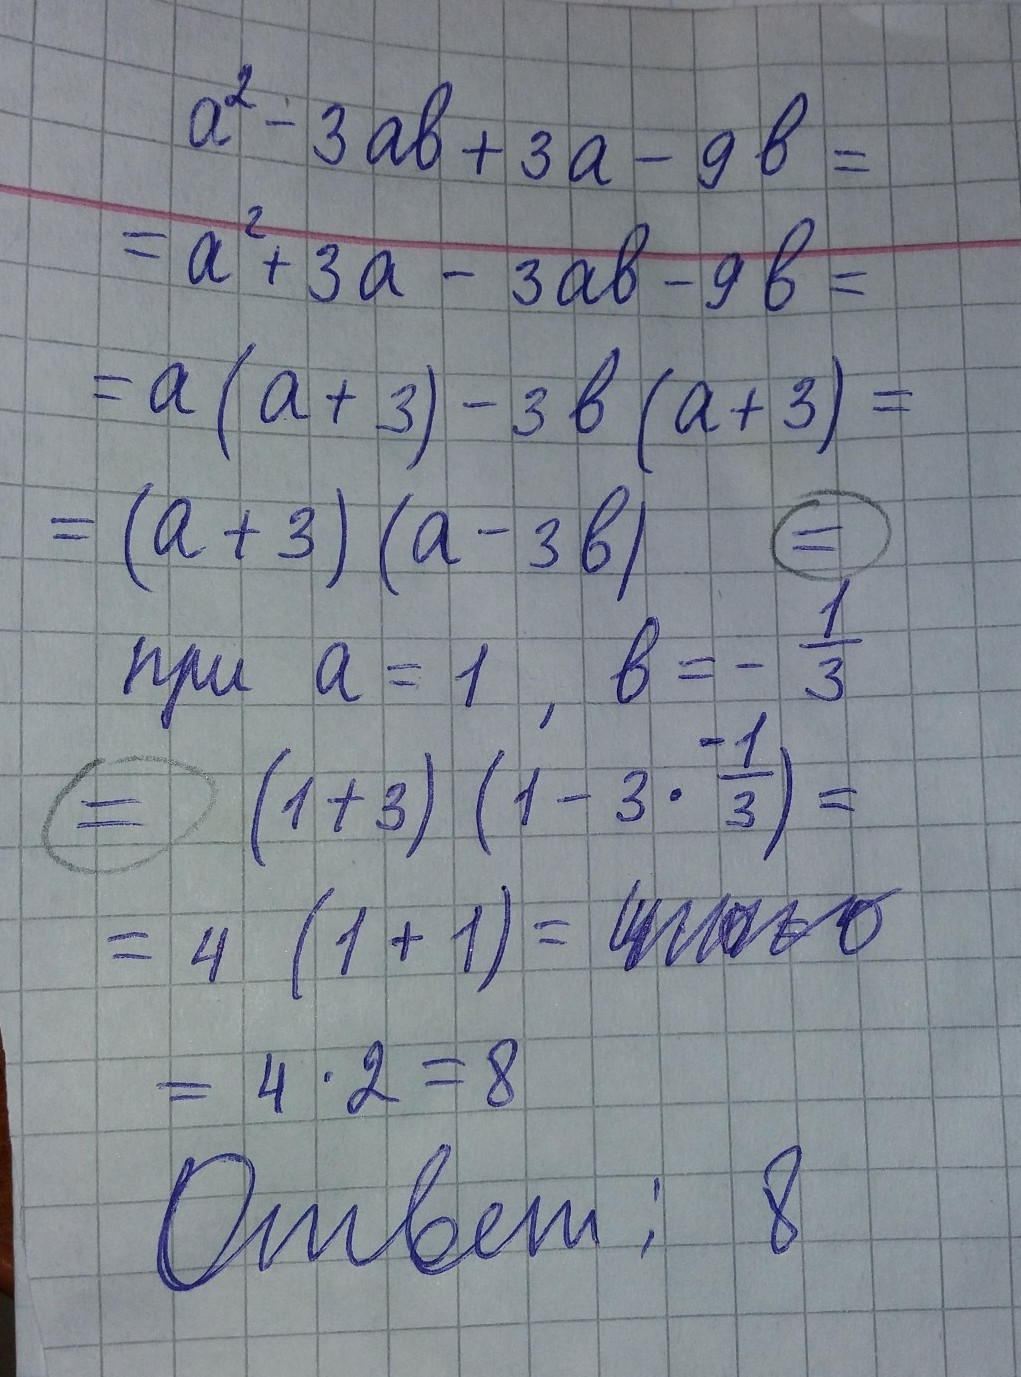 a² - 3ab + 3a - 9b =
= a² + 3a - 3ab - 9b =
= a (a + 3) - 3b (a + 3) =
= (a + 3) (a - 3b) =
при a = 1 , b = - 1/3
= (1 + 3) (1 - 3 · -1/3) =
= 4 (1 + 1) =
= 4 · 2 = 8
Ответ: 8